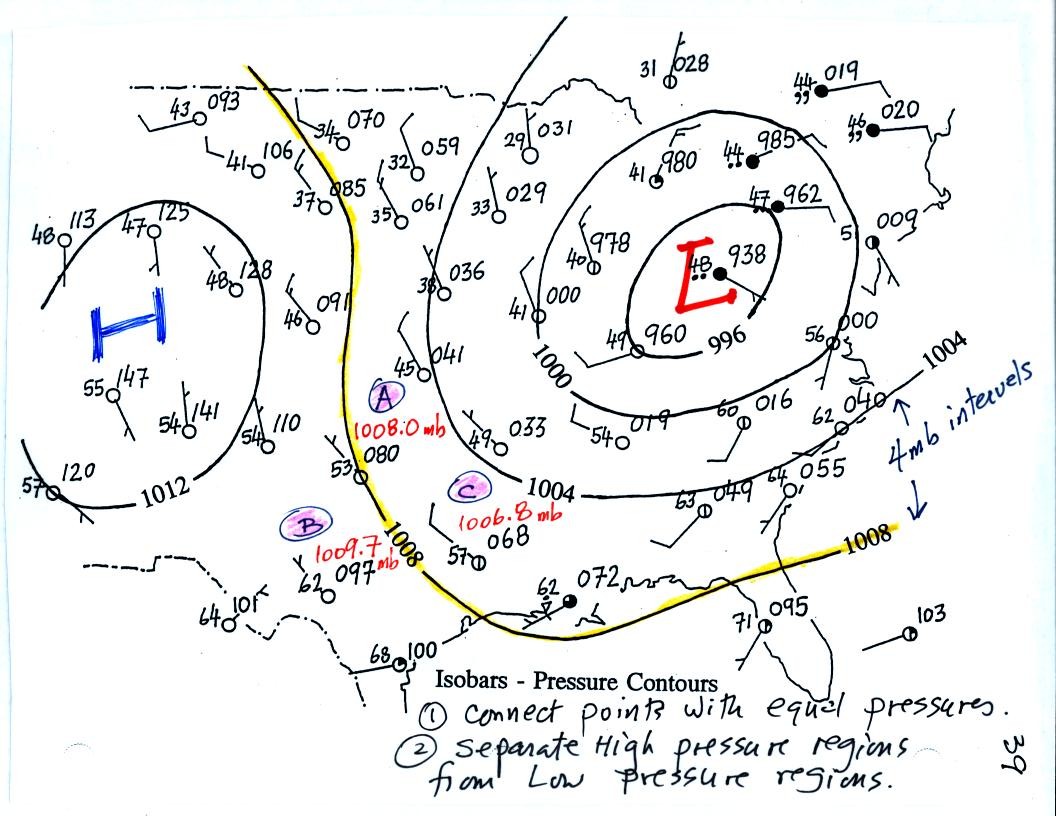 31 028
44 019
46 020
43 093
34 070
29 031
32 059
44 985
41 106
41 980
37 085
47 962
35 061
33 029
48 113
47 125
5 009
40 978
48 938
L
48 128
38 036
H
46 091
41 000
49 960
996
56 000
1000
1004
45 041
55 147
A
54 141
1008.0 mb
54 110
49 033
54 019
60 016
62 040
4mb intervels
53 080
64 055
57 120
1012
C
1004
63 049
B
1006.8 mb
1009.7 mb
1008
57 068
1008
62 097
62 072
64 101
71 095
103
68 100
Isobars - Pressure Contours
① Connect points with equal pressures.
② Separate High pressure regions
from Low pressure regions.
39